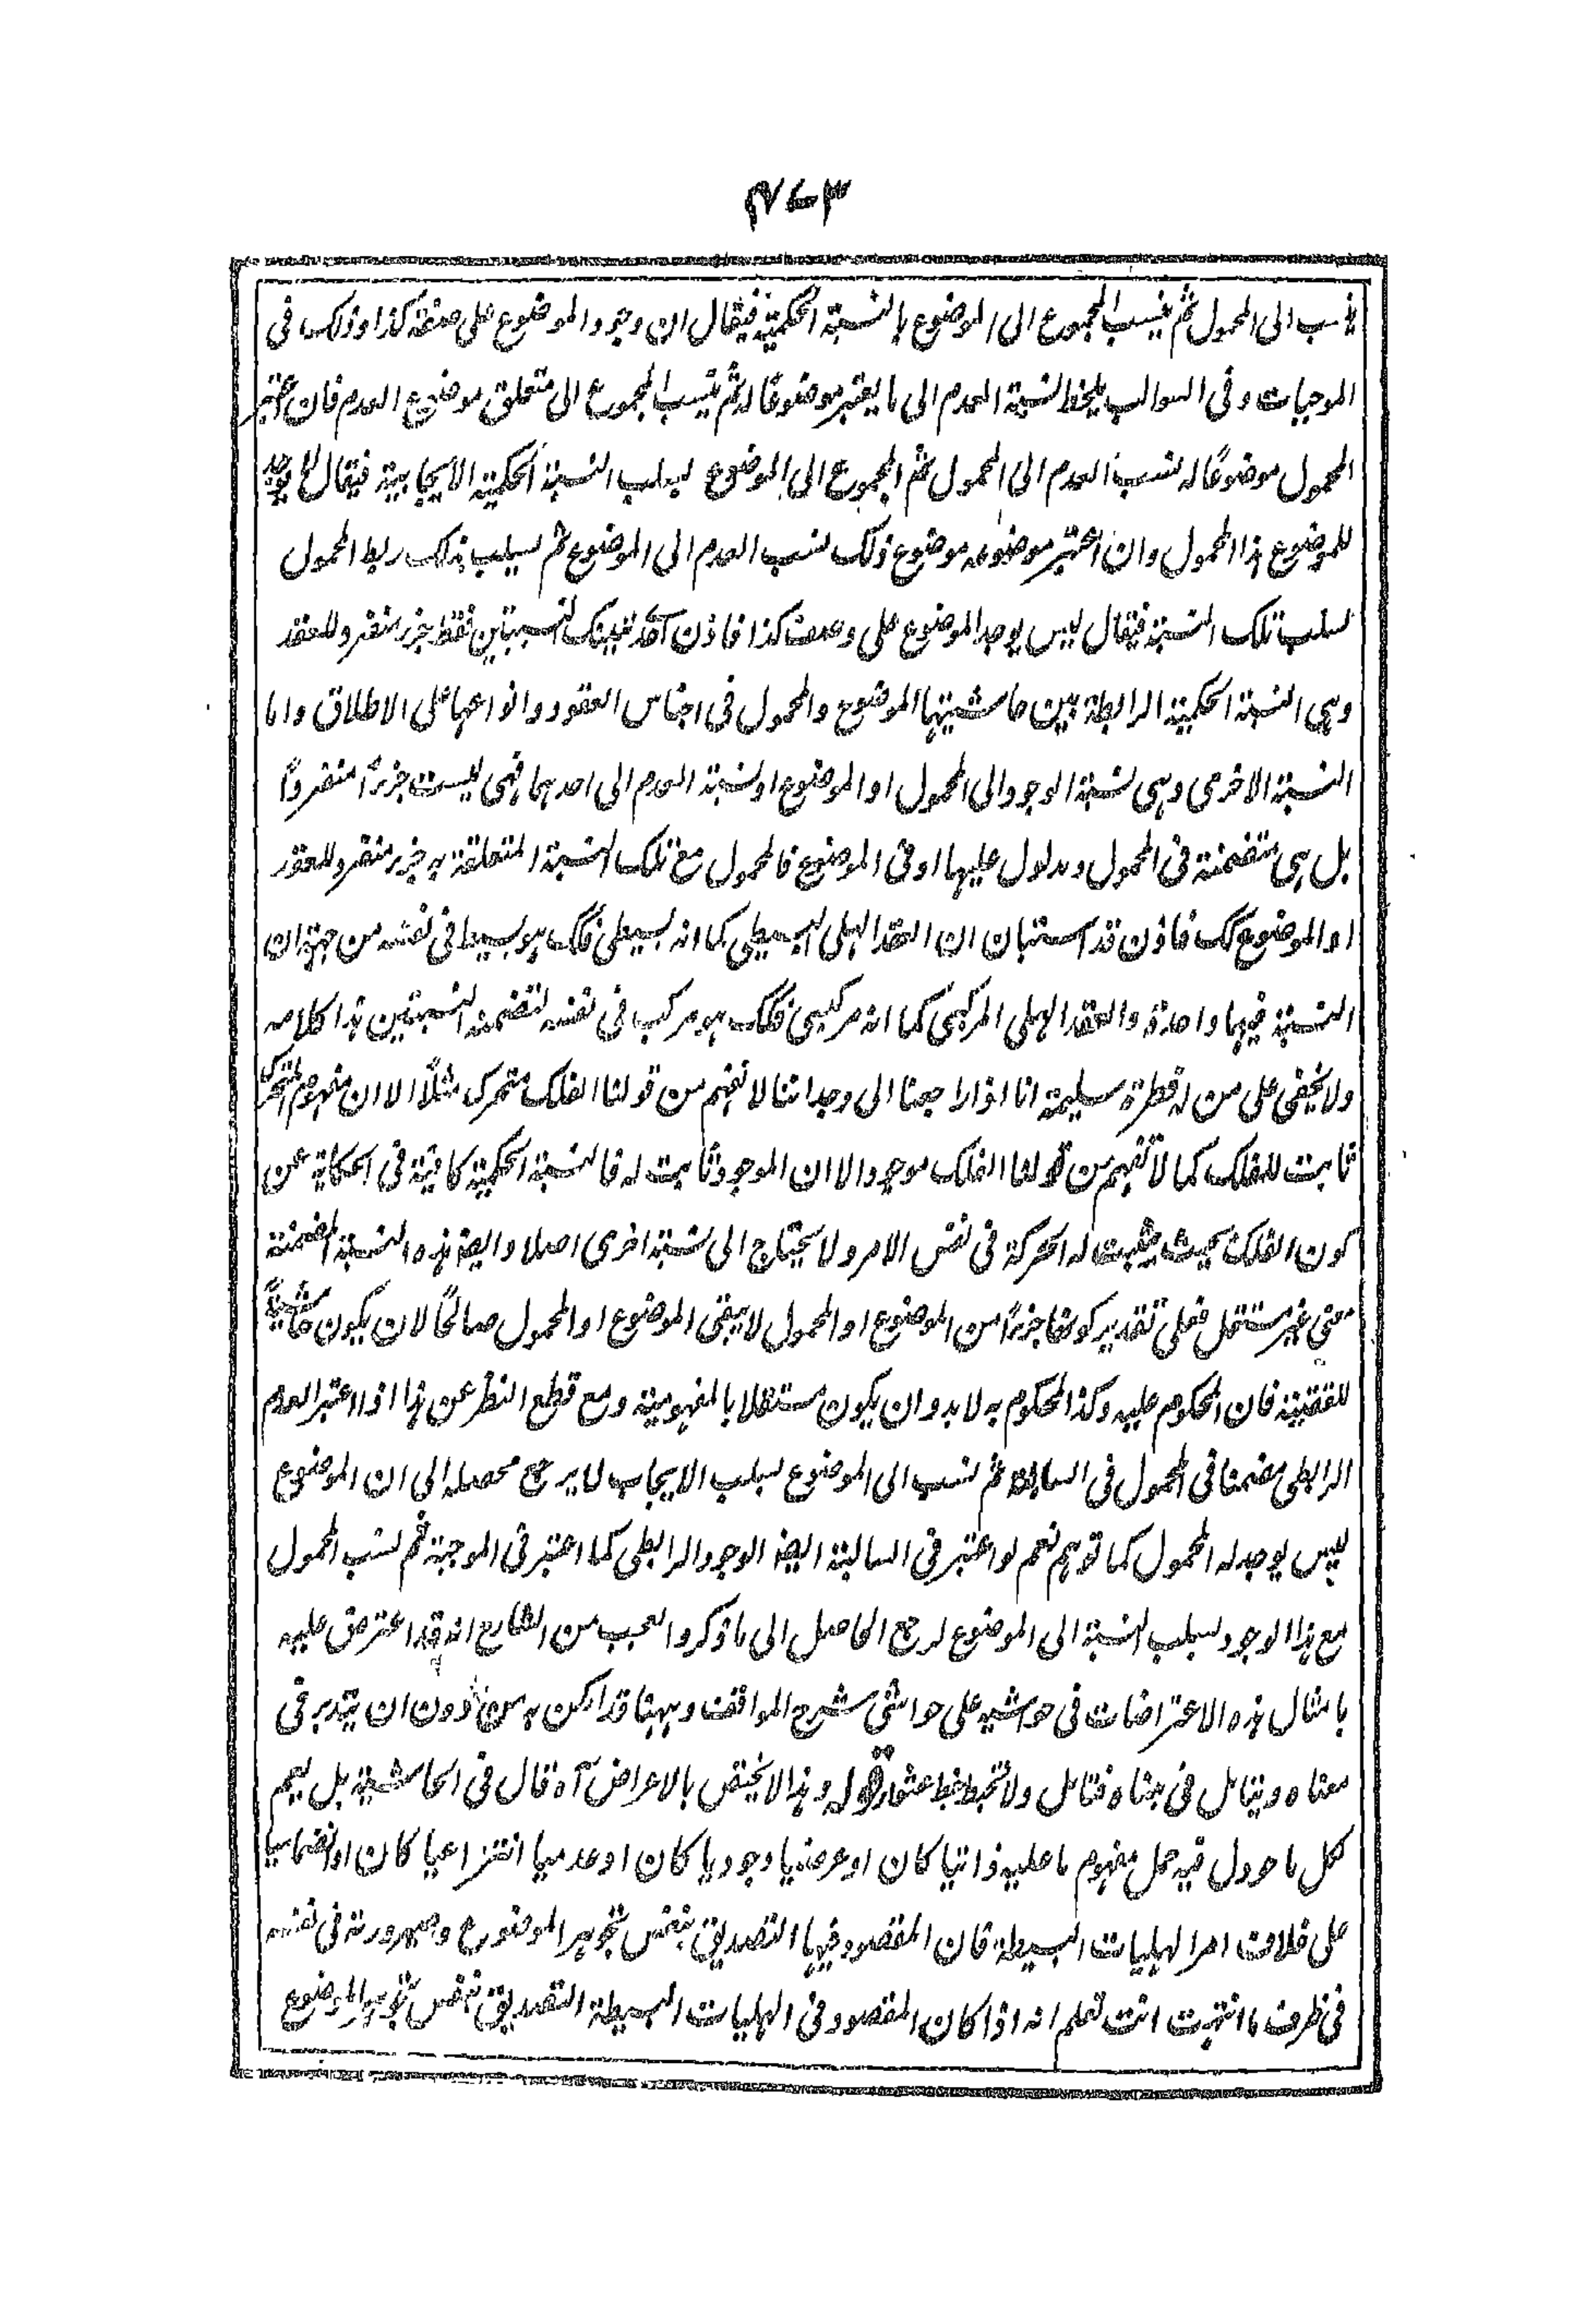 ۴۷۳
ينسب الى المحمول ثم ينسب المجموع الى الموضوع بالنسبة الحكمية فيقال ان وجود الموضوع على صفة كذا وذلك فى
الموجبات وفى السوالب يلحظ نسبة العدم الى ما يعتبر موضوعًا له ثم ينسب المجموع الى متعلق موضوع العدم فان اعتبر
المحمول موضوعًا له نسب العدم الى المحمول ثم المجموع الى الموضوع لسلب النسبة الحكمية الايجابية فيقال لا يوجد
للموضوع هذا المحمول وان اعتبر موضوعه موضوع ذلك نسب العدم الى الموضوع ثم سيلب بذلك ربط المحمول
لسلب تلك النسبة فيقال ليس يوجد الموضوع على وصف كذا فاذن احد تينك النسبتين فقط جزء منفرد للعقد
وهى النسبة الحكمية الرابطة بين حاشيتيها الموضوع والمحمول فى اجناس العقود وانواعها على الاطلاق واما
النسبة الاخرى وهى نسبة الوجود الى المحمول او الموضوع او نسبة العدم الى احدهما فهى ليست جزءً منفردًا
بل هى متضمنة فى المحمول ومدلول عليها او فى الموضوع فالمحمول مع تلك النسبة المتعلقة به جزء منفرد للعقد
او الموضوع كك فاذن قد استبان ان العقد الهلى البسيطى كما انه بسيطى فكك هو بسيط فى نفسه من جهة ان
النسبة فيها واحدة والعقد الهلى المركبى كما انه مركبى فكك هو مركب فى نفسه لتضمنه النسبتين هذا كلامه
ولا يخفى على من له فطرة سليمة انا اذا راجعنا الى وجداننا لا نفهم من قولنا الفلك متحرك مثلًا الا ان مفهوم المتحرك
ثابت للفلك كما لا نفهم من قولنا الفلك موجود الا ان الموجود ثابت له فالنسبة الحكمية كافية فى الحكاية عن
كون الفلك بحيث يثبت له الحركة فى نفس الامر ولا يحتاج الى نسبة اخرى اصلا وايضا هذه النسبة المضمنة
معنى غير مستقل فعلى تقدير كونها جزءًا من الموضوع او المحمول لا يبقى الموضوع او المحمول صالحًا لان يكون حاشيةً
للقضية فان المحكوم عليه وكذا المحكوم به لا بد وان يكون مستقلا بالمفهومية ومع قطع النظر عن هذا اذا اعتبر العدم
الرابطى مضمنا فى المحمول فى السالبة ثم نسب الى الموضوع لسلب الايجاب لا يرجع محصله الى ان الموضوع
ليس يوجد له المحمول كما توهم نعم لو اعتبر فى السالبة ايضا الوجود الرابطى كما اعتبر فى الموجبة ثم نسب المحمول
مع هذا الوجود لسلب النسبة الى الموضوع لرجع الحاصل الى ما ذكر والعجب من الشارح انه قد اعترض عليه
بامثال هذه الاعتراضات فى حواشيه على حواشى شرح المواقف وههنا قد امكن به من دون ان يتدبر فى
معناه ويتامل فى مبناه فتامل ولا تخبط خبط عشواء قوله وهذا لا يختص بالاعراض آه قال فى الحاشية بل يعم
لكل ما حوول فيه حمل مفهوم ما عليه ذاتيا كان او عرضيا وجوديا كان او عدميا انتزاعيا كان او انضماميا
على خلاف امر الهليات البسيطة فان المقصود فيها التصديق بنفس تجوهر الموضوع وصيرورته فى نفسه
فى ظرف ما انتهت انت تعلم انه اذا كان المقصود فى الهليات البسيطة التصديق بنفس تجوهر الموضوع